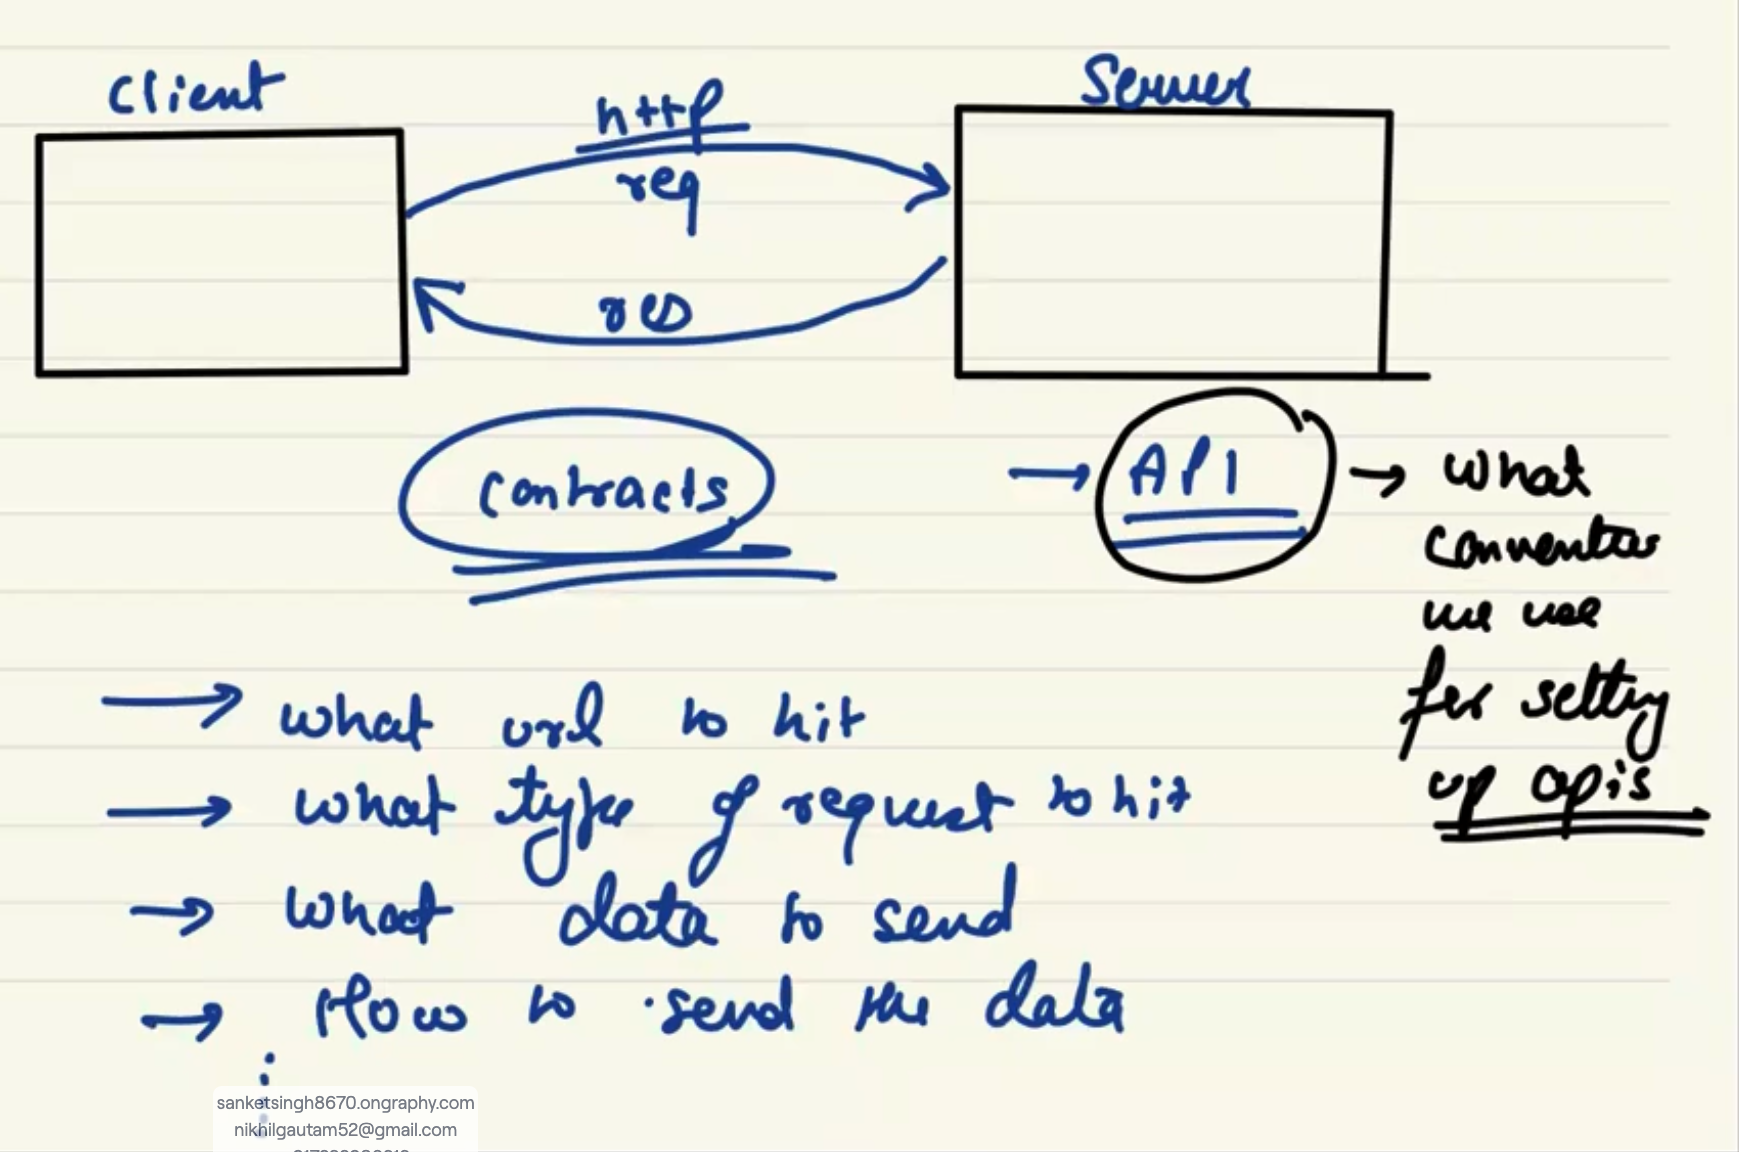 Client
Server
http
req
res
contracts
→ API → what
conventions
we use
for setting
up apis
→ what url to hit
→ what type of request to hit
→ what data to send
→ How to send the data
sanketsingh8670.ongraphy.com
nikhilgautam52@gmail.com